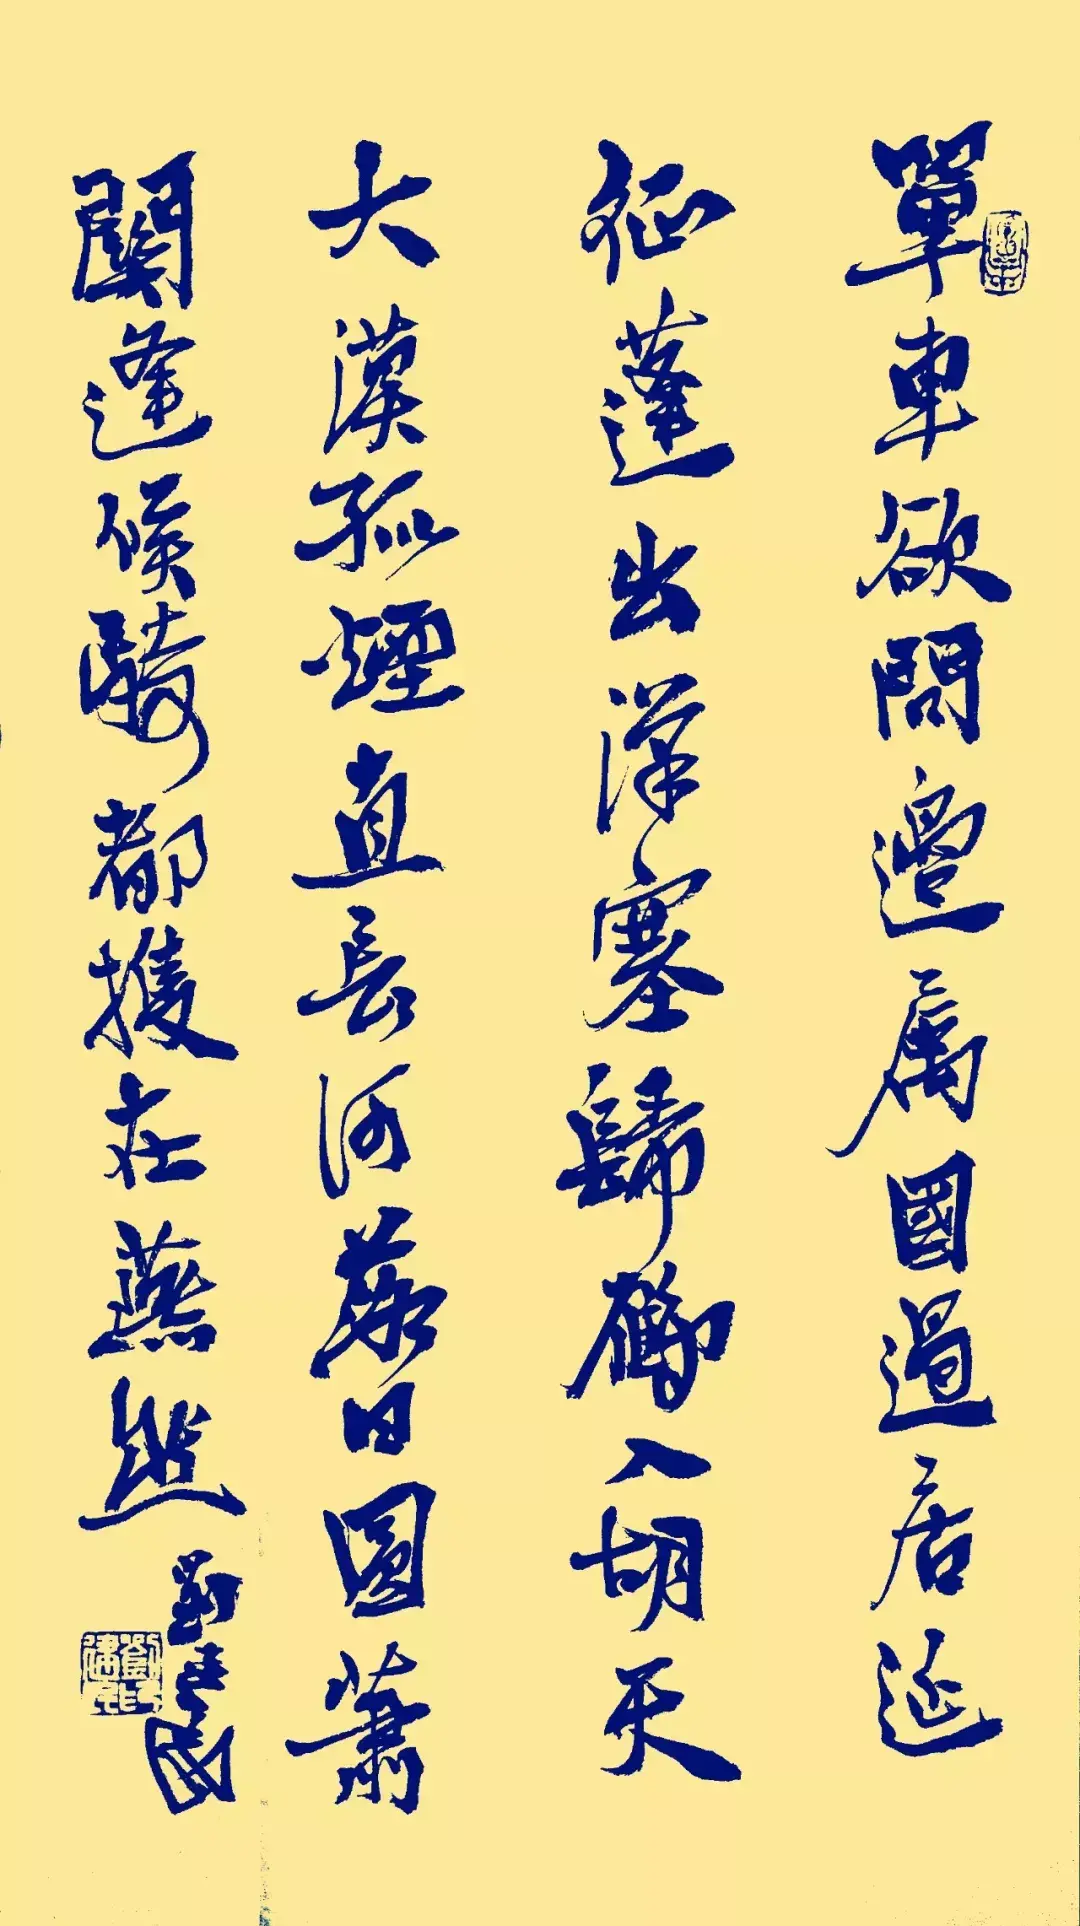 單車欲問邊屬國過居延
征蓬出漢塞歸雁入胡天
大漠孤煙直長河落日圓蕭
關逢候騎都護在燕然
劉建民